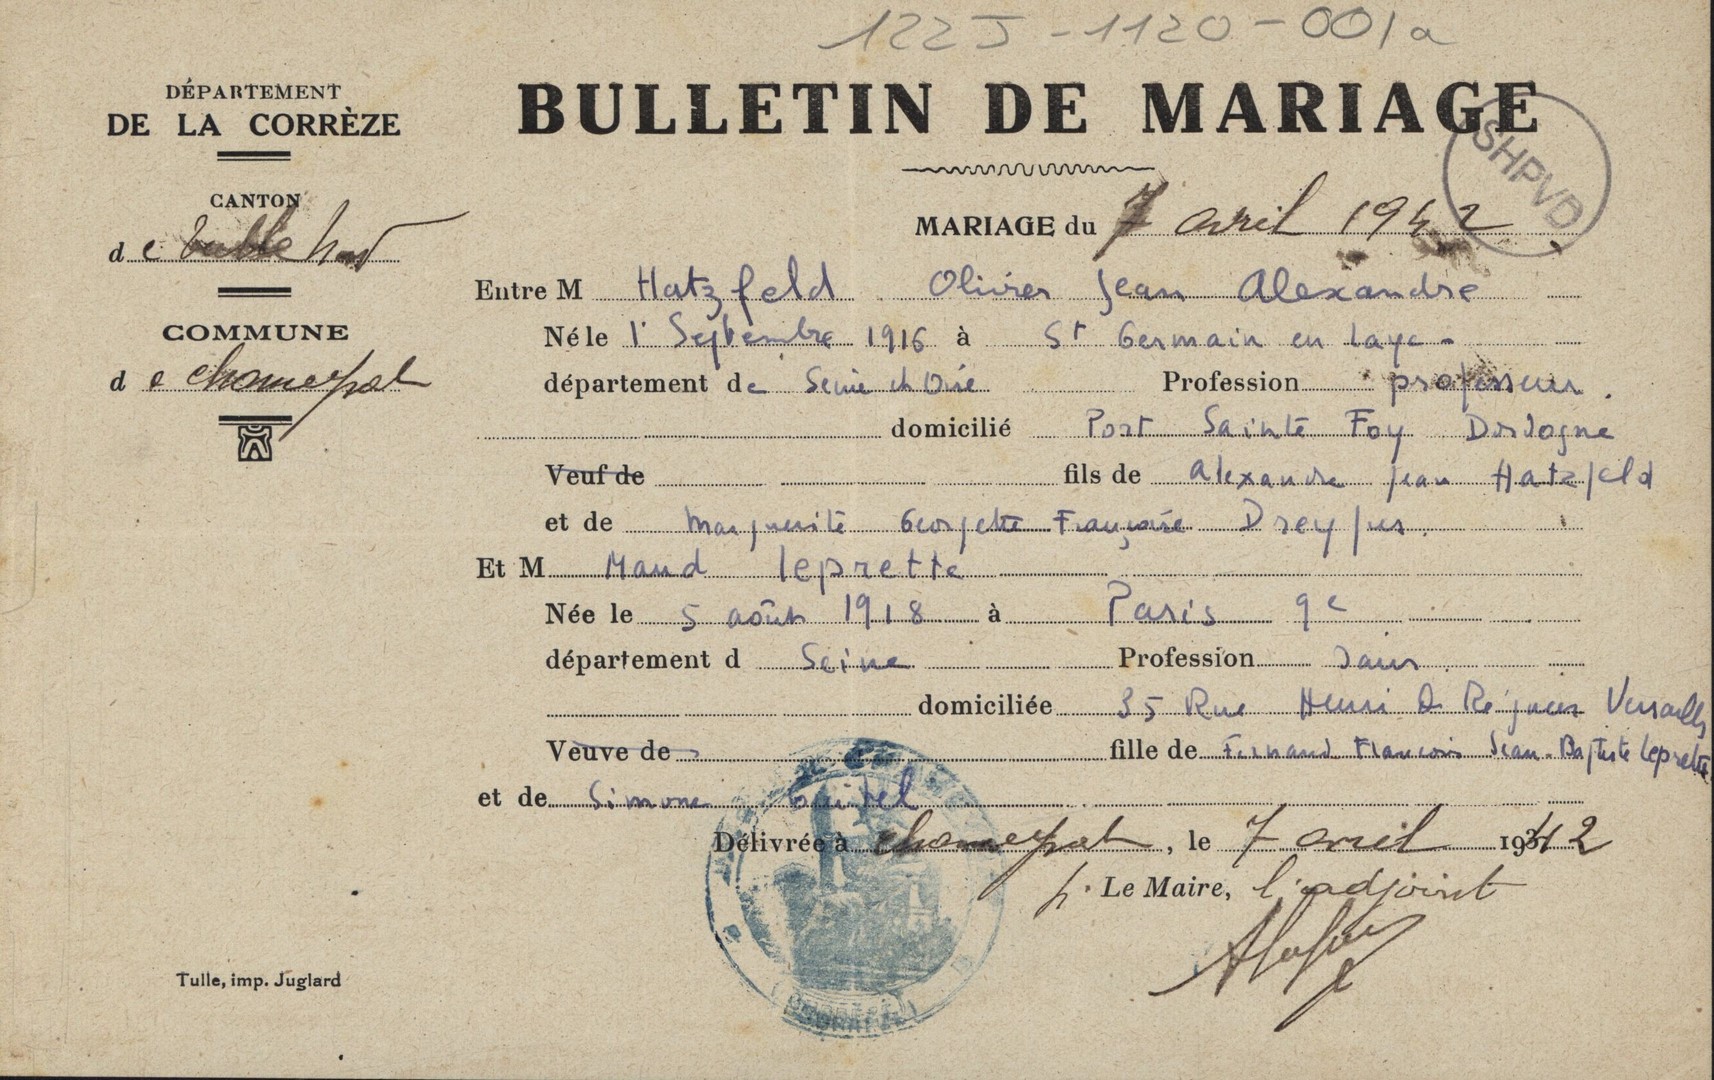 122J-1120-001a
DÉPARTEMENT
DE LA CORRÈZE
CANTON
de Tulle Nord
COMMUNE
de Chameyrat
Tulle, imp. Juglard
BULLETIN DE MARIAGE
SHPVD
MARIAGE du 7 avril 1942
Entre M Hatzfeld Olivier Jean Alexandre
Né le 1r Septembre 1916 à St Germain en Laye -
département de Seine et Oise Profession professeur.
domicilié Port Sainte Foy Dordogne
Veuf de fils de Alexandre Jean Hatzfeld
et de Marguerite Georgette Françoise Dreyfus.
Et M Maud Leprette
Née le 5 août 1918 à Paris 9e
département d Seine Profession sans
domiciliée 35 Rue Henri de Régnier Versailles
Veuve de fille de Fernand Francois Jean-Baptiste Leprette
et de Simone
Délivrée à Chameyrat, le 7 avril 1942
p. Le Maire, l'adjoint
(CORRÈZE)